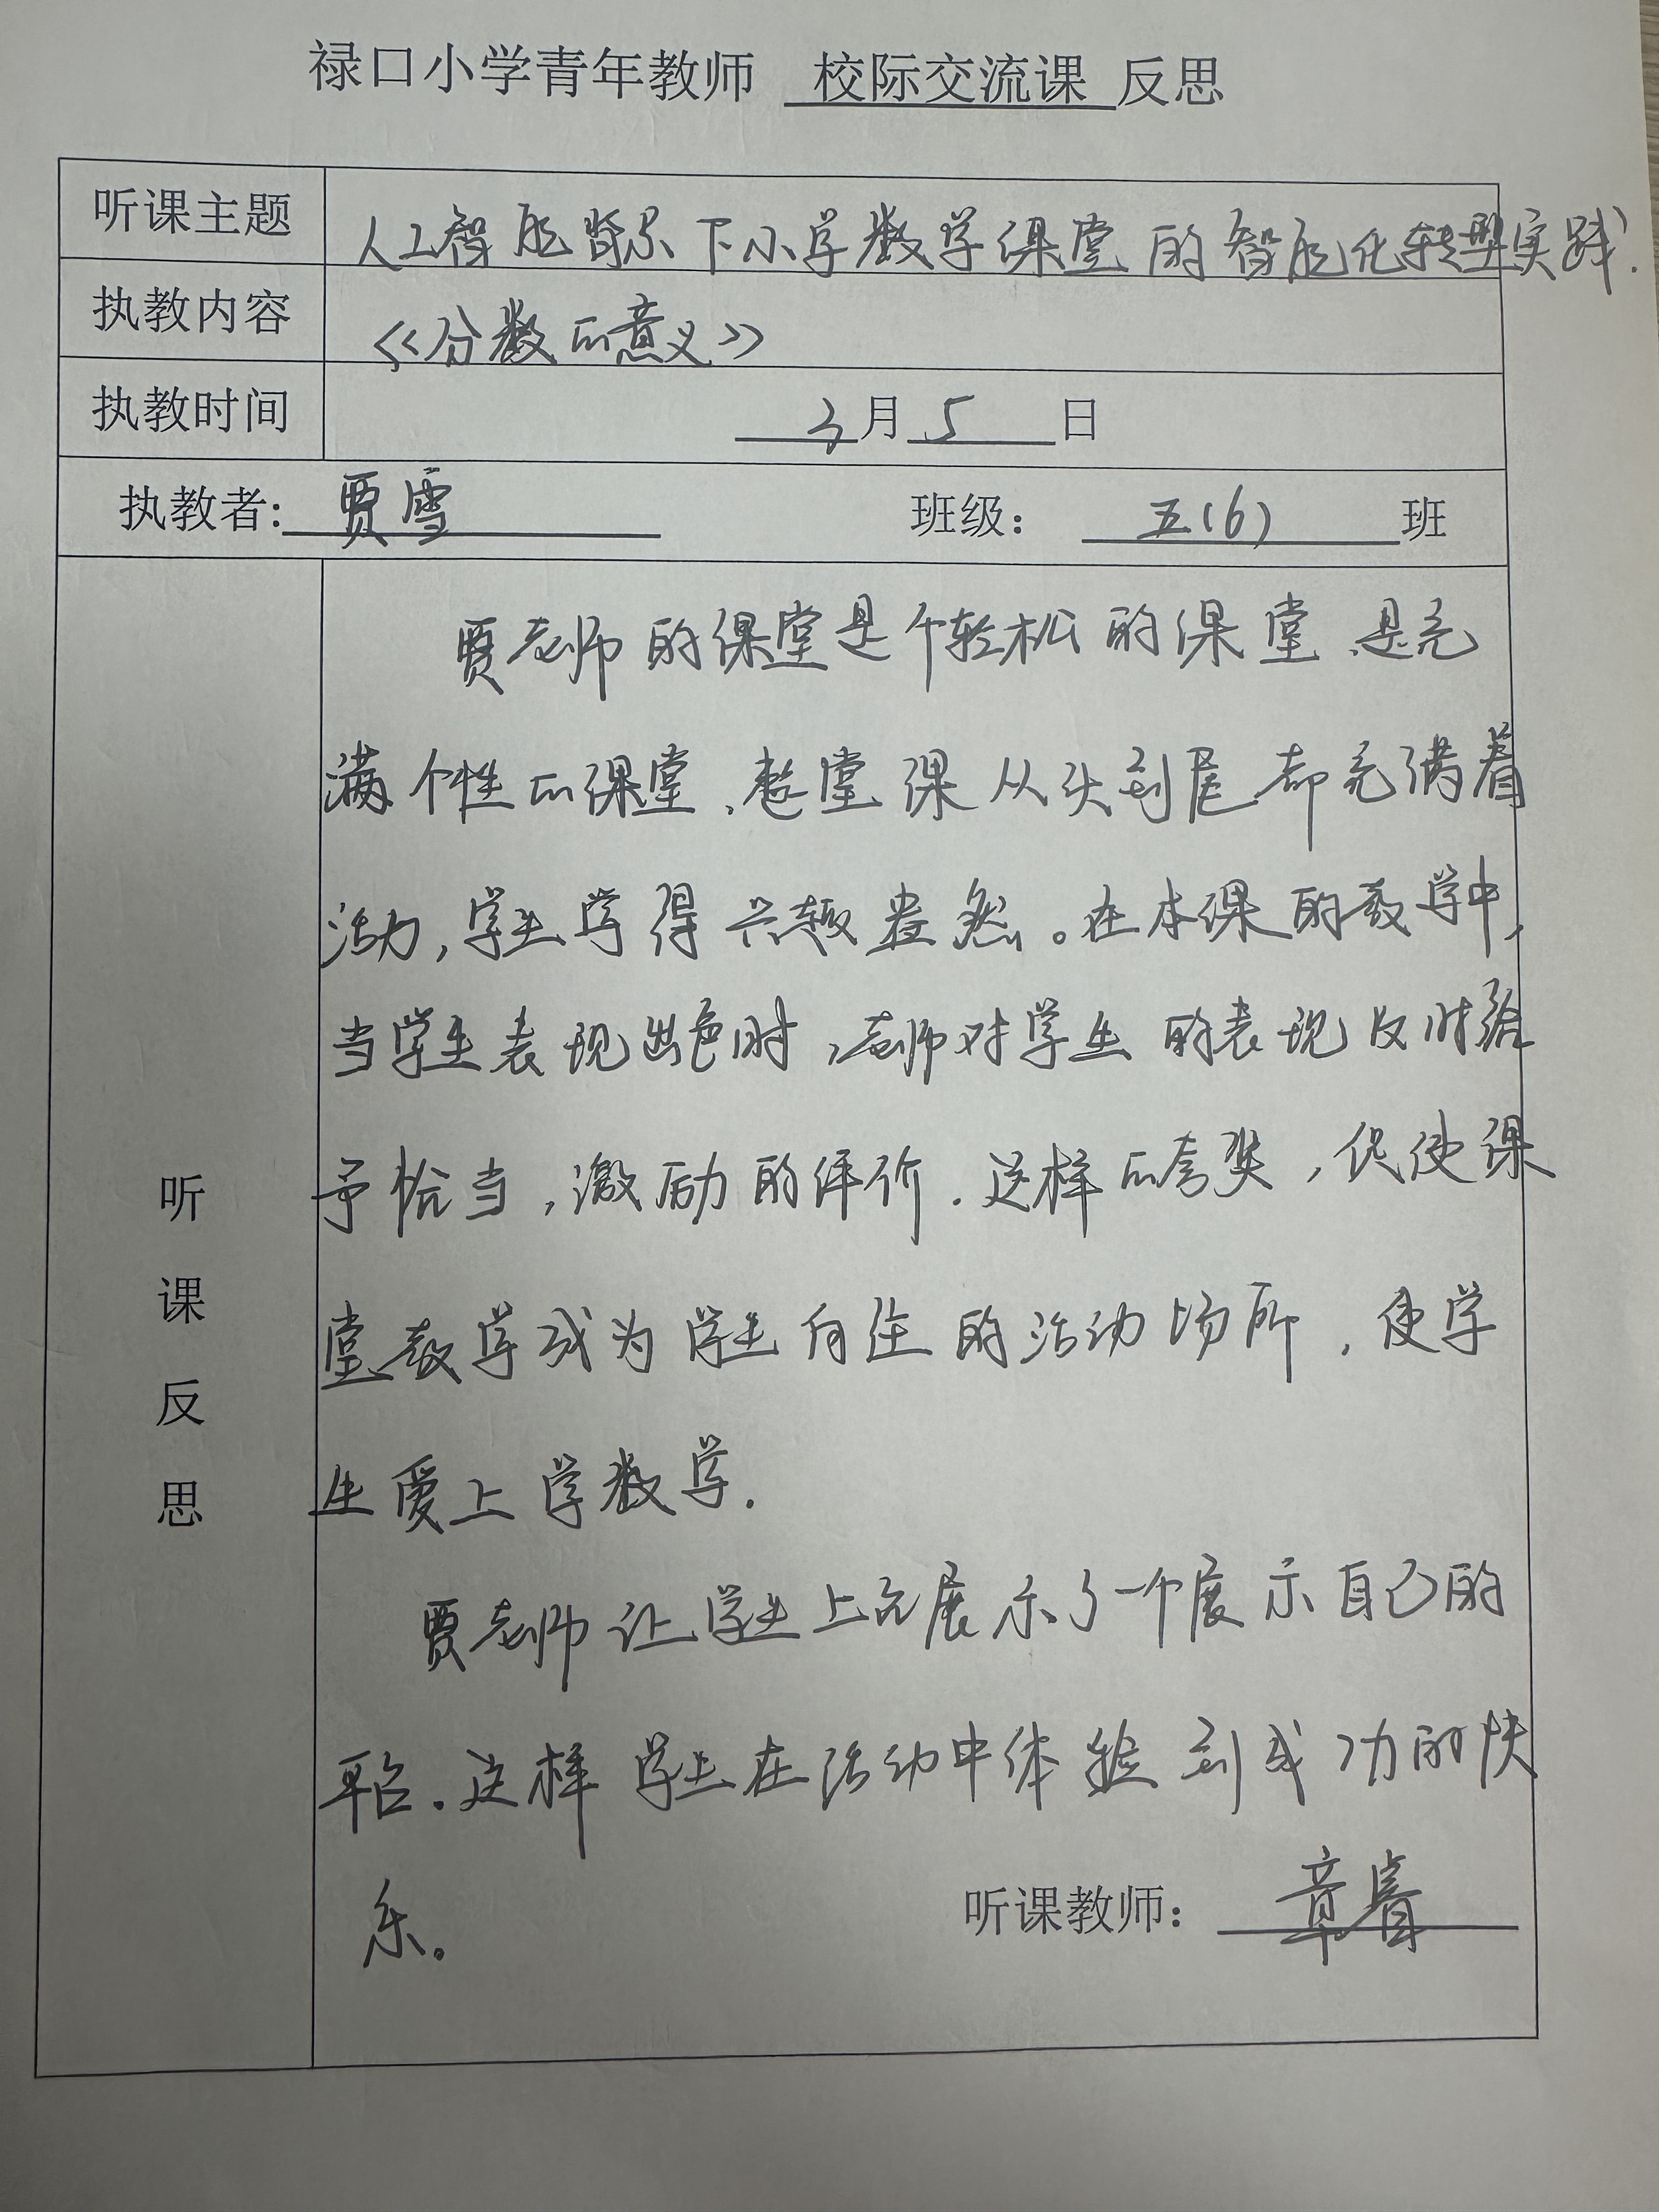 禄口小学青年教师 校际交流课 反思
听课主题 人工智能背景下小学数学课堂的智能化转型实践.
执教内容 《分数的意义》
执教时间 3月5日
执教者: 贾雪 班级: 五(6) 班
贾老师的课堂是个轻松的课堂、是充
满个性的课堂、整堂课从头到尾都充满着
活力,学生学得兴趣盎然。在本课的教学中,
当学生表现出色时,老师对学生的表现及时给
予恰当,激励的评价.这样的夸奖,促使课
堂教学成为学生向往的活动场所,使学
生爱上学数学.
贾老师让学生上台展示了一个展示自己的
平台.这样学生在活动中体验到成功的快
乐。
听课反思
听课教师: 章睿